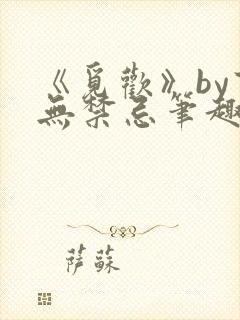 《覓歡》by
無禁忌筆趣
薩蘇